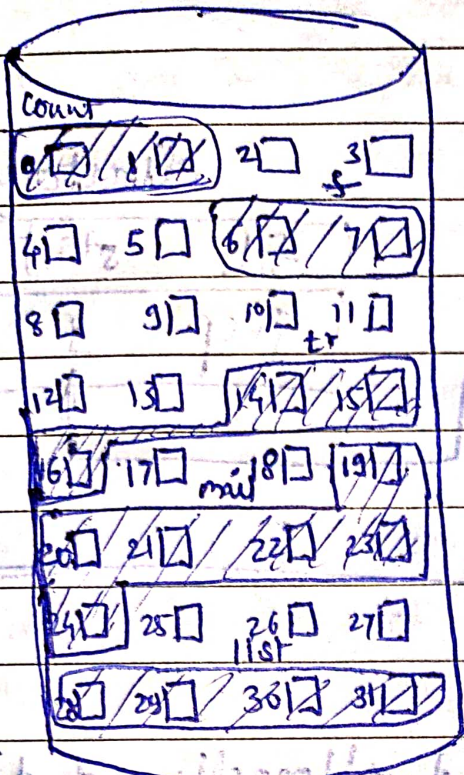 count
0 1 2 3
f
4 5 6 7
8 9 10 11
tr
12 13 14 15
16 17 18 19
mail
20 21 22 23
24 25 26 27
list
28 29 30 31